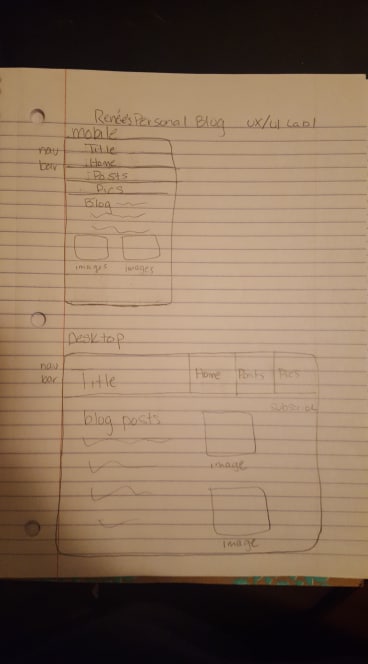 Renée's Personal Blog UX/UI Lab 1
mobile
nav bar
Title
Home
Posts
Pics
Blog
images images
Desktop
nav bar
Title Home Posts Pics
subscribe
blog posts
image
image